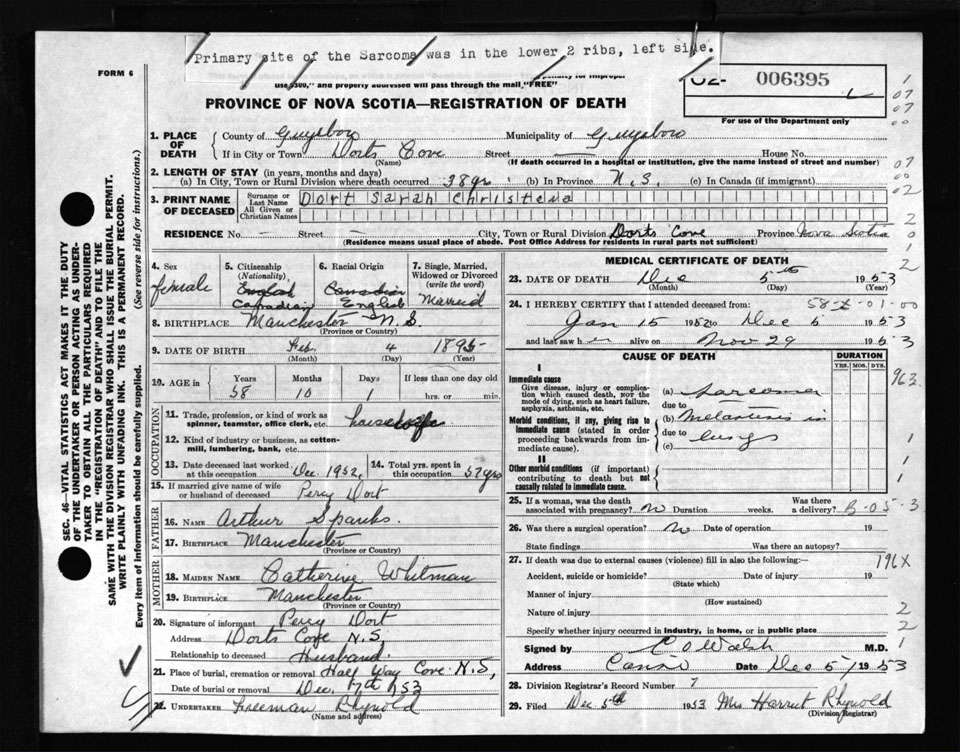 Primary site of the Sarcoma was in the lower 2 ribs, left side.
FORM 6
use $300," and property addressed will pass through the mail "FREE"
006395
PROVINCE OF NOVA SCOTIA—REGISTRATION OF DEATH
For use of the Department only
1. PLACE OF DEATH
County of Guysboro Municipality of Guysboro
If in City or Town Dorts Cove Street — House No.
(Name) (If death occurred in a hospital or institution, give the name instead of street and number)
2. LENGTH OF STAY (in years, months and days)
(a) In City, Town or Rural Division where death occurred 38yrs (b) In Province N.S. (c) In Canada (if immigrant)
3. PRINT NAME OF DECEASED
Surname or Last Name Dort Sarah Christena
All Given or Christian Names
RESIDENCE No. — Street — City, Town or Rural Division Dorts Cove Province Nova Scotia
(Residence means usual place of abode. Post Office Address for residents in rural parts not sufficient)
4. Sex female
5. Citizenship (Nationality) English Canadian
6. Racial Origin Canadian English
7. Single, Married, Widowed or Divorced (write the word) Married
8. BIRTHPLACE Manchester N.S.
(Province or Country)
9. DATE OF BIRTH Feb. 4 1895
(Month) (Day) (Year)
10. AGE in Years Months Days If less than one day old
58 10 1 hrs. or min.
OCCUPATION
11. Trade, profession, or kind of work as spinner, teamster, office clerk, etc.
12. Kind of industry or business, as cotton-mill, lumbering, bank, etc.
13. Date deceased last worked at this occupation Dec. 1952,
14. Total yrs. spent in this occupation 37yrs
15. If married give name of wife or husband of deceased Percy Dort
FATHER
16. NAME Arthur Spanks.
17. BIRTHPLACE Manchester
(Province or Country)
MOTHER
18. MAIDEN NAME Catherine Whitman
19. BIRTHPLACE Manchester
(Province or Country)
20. Signature of informant Percy Dort
Address Dorts Cove N.S,
Relationship to deceased Husband.
21. Place of burial, cremation or removal Half Way Cove N.S,
Date of burial or removal Dec. 7th 1953
22. UNDERTAKER Freeman Rhynold
(Name and address)
MEDICAL CERTIFICATE OF DEATH
23. DATE OF DEATH Dec 5th 1953
(Month) (Day) (Year)
24. I HEREBY CERTIFY that I attended deceased from:
Jan 15 1952 to Dec 5 1953
and last saw her alive on Nov 29 1953
CAUSE OF DEATH
DURATION
YRS. MOS. DYS.
I
Immediate cause
Give disease, injury or complication which caused death, NOT the mode of dying, such as heart failure, asphyxia, asthenia, etc.
(a) Sarcoma
due to
Morbid conditions, if any, giving rise to immediate cause (stated in order proceeding backwards from immediate cause).
(b) Metastasis in
due to lungs
(c)
II
Other morbid conditions (if important) contributing to death but not causally related to immediate cause.
25. If a woman, was the death associated with pregnancy? N Duration weeks. Was there a delivery?
26. Was there a surgical operation? N Date of operation 19
State findings Was there an autopsy?
27. If death was due to external causes (violence) fill in also the following:—
Accident, suicide or homicide? Date of injury 19
(State which)
Manner of injury
(How sustained)
Nature of injury
Specify whether injury occurred in Industry, in home, or in public place
Signed by C O Walsh M.D.
Address Canso Date Dec 5/1953
28. Division Registrar's Record Number 7
29. Filed Dec 5th 1953 Mrs Harriet Rhynold
(Division Registrar)
SEC. 46—VITAL STATISTICS ACT MAKES IT THE DUTY
OF THE UNDERTAKER OR PERSON ACTING AS UNDER-
TAKER TO OBTAIN ALL THE PARTICULARS REQUIRED
IN THE "REGISTRATION OF DEATH" AND TO FILE THE
SAME WITH THE DIVISION REGISTRAR WHO SHALL ISSUE THE BURIAL PERMIT.
WRITE PLAINLY WITH UNFADING INK. THIS IS A PERMANENT RECORD.
Every item of information should be carefully supplied. (See reverse side for instructions.)
1
07
07
00
07
00
02
2
0
1
2
963
1
1
1
3
196X
2
2
1